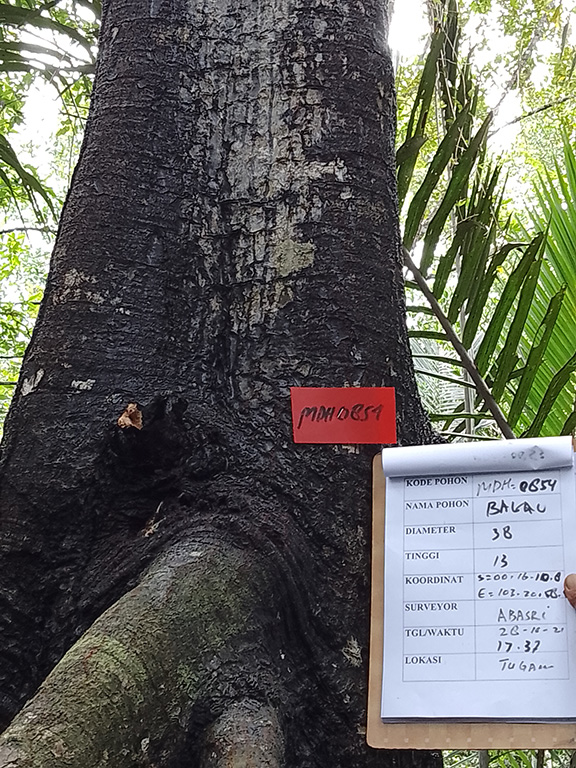 MDH0854
KODE POHON MDH=0854
NAMA POHON BAKAU
DIAMETER 38
TINGGI 13
KOORDINAT S=00.16.10.8
E=103.20.58.
SURVEYOR ABASRI
TGL/WAKTU 28-10-21
17.37
LOKASI TUGAU